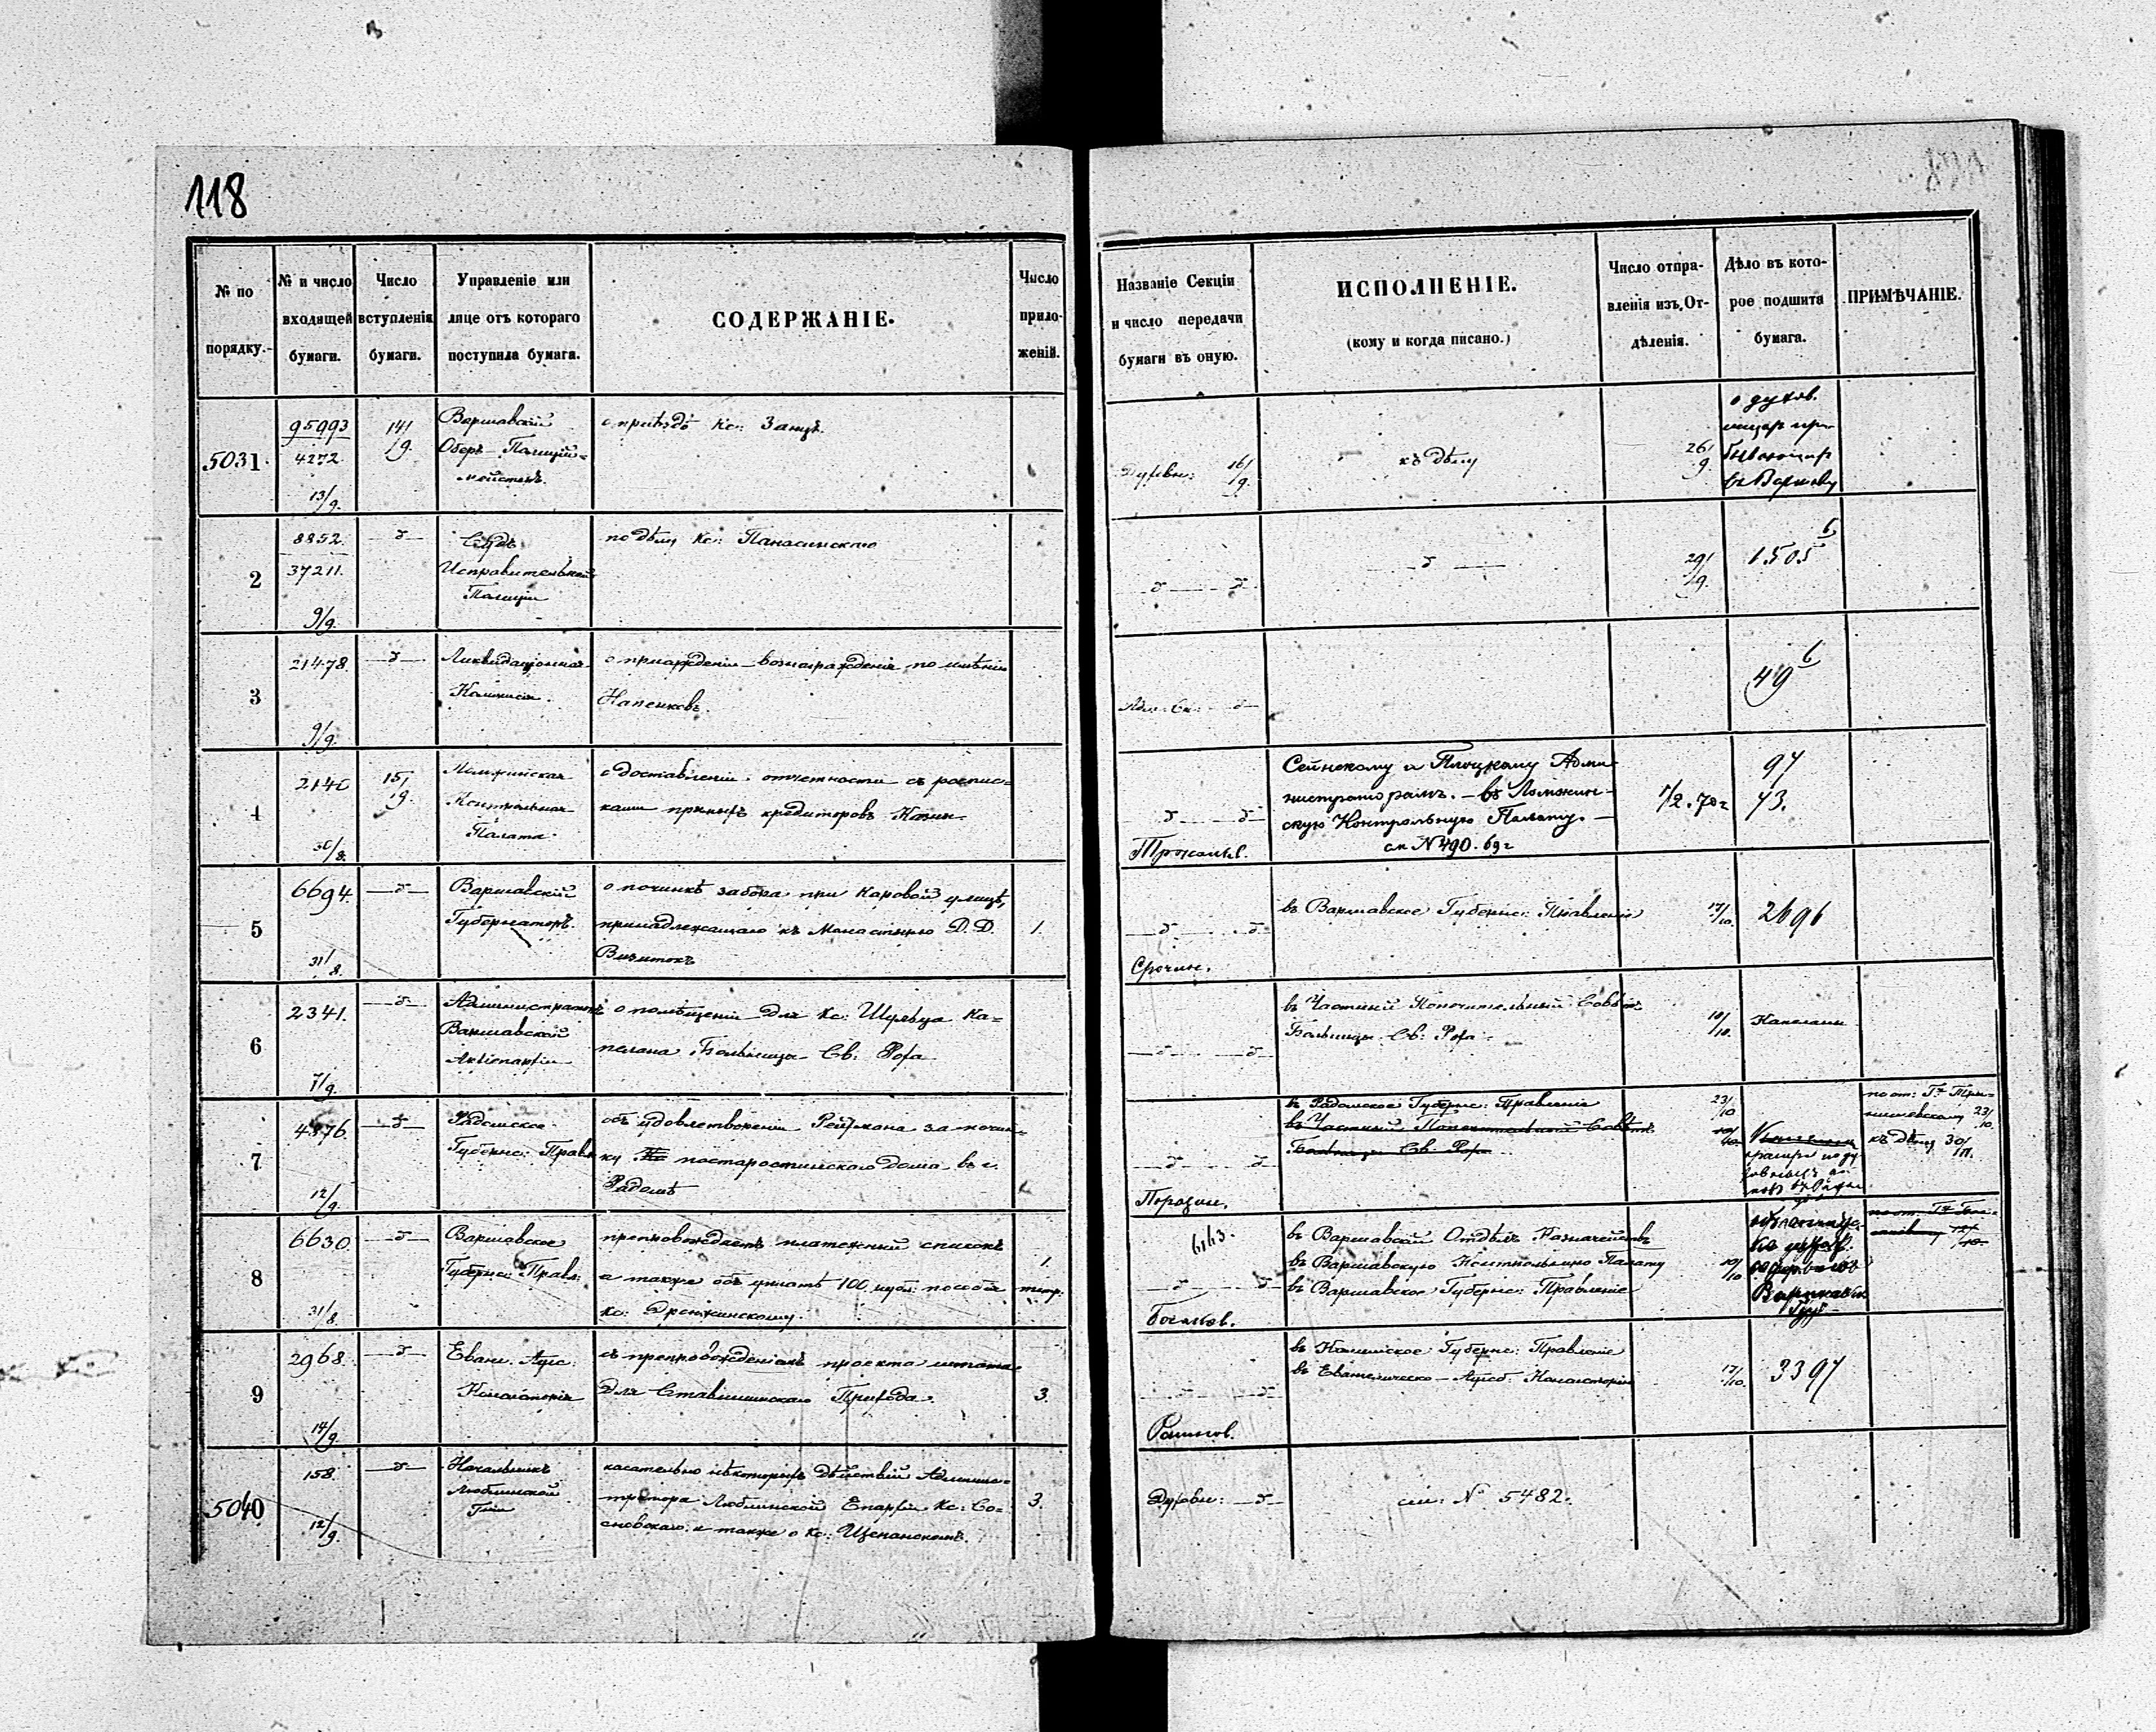 118
№ по порядку.
№ и число входящей бумаги.
Число вступленія бумаги.
Управленіе или лице отъ котораго поступила бумага.
СОДЕРЖАНІЕ.
Число приложеній.
Названіе Секціи и число передачи бумаги въ оную.
ИСПОЛНЕНІЕ.
(кому и когда писано.)
Число отправленія изъ Отдѣленія.
Дѣло въ которое подшита бумага.
ПРИМѢЧАНІЕ.
5031.
95993
4272
13/9.
14/9.
Варшавскій
Оберъ-Полицій-
мейстеръ.
о приѣздѣ Кс:
Духовн: 16/9.
къ дѣлу
26/9.
о духов.
въ Варшаву
2
8852.
37211.
9/9.
Судъ
Исправительной
Полиціи
по дѣлу Кс: Панасинскаго
29/9.
1505
3
21478
9/9.
Ликвидаціонная
Комиссія.
о присужденіи вознагражденія по имѣнію
49
4
2140
30/8.
15/9.
Ломжинская
Контрольная
Палата
о доставленіи отчетности съ роспис=
ками кредиторовъ
Сейнскому и Плоцкому Адми-
нистраторамъ. - въ Ломжин-
скую Контрольную Палату. -
см N 490. 69 г
1/2. 70 г
97
43.
5
6694.
31/8.
Варшавскій
Губернаторъ.
о починкѣ забора при Каровой улицѣ,
принадлежащаго къ Монастырю Д.Д.
Визитокъ
1.
Срочн.
въ Варшавское Губернс: Правленіе
17/10.
2696
6
2341.
7/9.
Администраторъ
Варшавской
Архіепархіи
о помѣщеніи для Кс: Шульца Ка=
пелана Больницы Св: Роха
въ Частный Попечительный Совѣтъ
Больницы Св: Роха
10/10.
Капелани
7
4876.
12/9.
Радомское
Губернс: Правл
объ удовлетвореніи Рейхмана за почин-
ку постаростинскаго дома въ г.
Радомѣ
въ Радомское Губернс: Правленіе
въ Частный Попечительный Совѣтъ
Больницы Св: Роха
23/10
къ дѣлу 30/11.
8
6630.
31/8.
Варшавское
Губернс: Правл:
препровождаетъ платежный списокъ
а также объ уплатѣ 100 рубл: пособія
кс:
1.
6163.
въ Варшавскій Отдѣлъ Казначействъ
въ Варшавскую Контрольную Палату
въ Варшавское Губернс: Правленіе
10/10
9
2968.
14/9.
Еванг. Аугс:
Консисторія
съ препровожденіемъ проекта штата
для Ставишинскаго Прихода.
3.
въ Калишское Губернс: Правленіе
въ Евангелическо-Аугсб: Консисторію
17/10.
3397
5040
158.
12/9.
Начальникъ
Люблинской
Гніи
касательно нѣкоторыхъ дѣйствій Админис=
тратора Люблинской Епархіи Кс: Со=
сновскаго, а также о Кс: Щепанскомъ.
3.
Духовн:
см: N 5482.